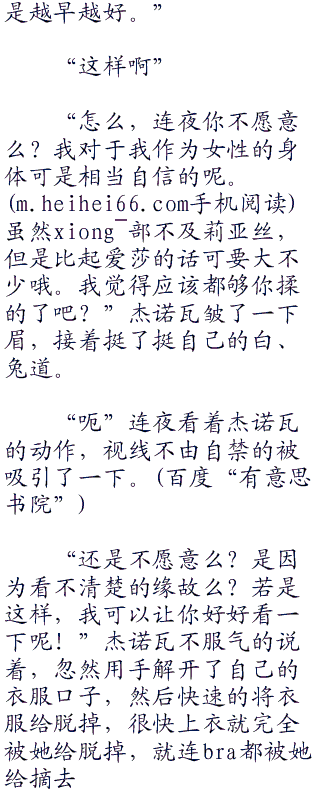 是越早越好。”
“这样啊”
“怎么，连夜你不愿意
么？我对于我作为女性的身
体可是相当自信的呢。
(m.heihei66.com手机阅读)
虽然xiong¯部不及莉亚丝，
但是比起爱莎的话可要大不
少哦。我觉得应该都够你揉
的了吧？”杰诺瓦皱了一下
眉，接着挺了挺自己的白、
兔道。
“呃”连夜看着杰诺瓦
的动作，视线不由自禁的被
吸引了一下。(百度“有意思
书院”)
“还是不愿意么？是因
为看不清楚的缘故么？若是
这样，我可以让你好好看一
下呢！”杰诺瓦不服气的说
着，忽然用手解开了自己的
衣服口子，然后快速的将衣
服给脱掉，很快上衣就完全
被她给脱掉，就连bra都被她
给摘去